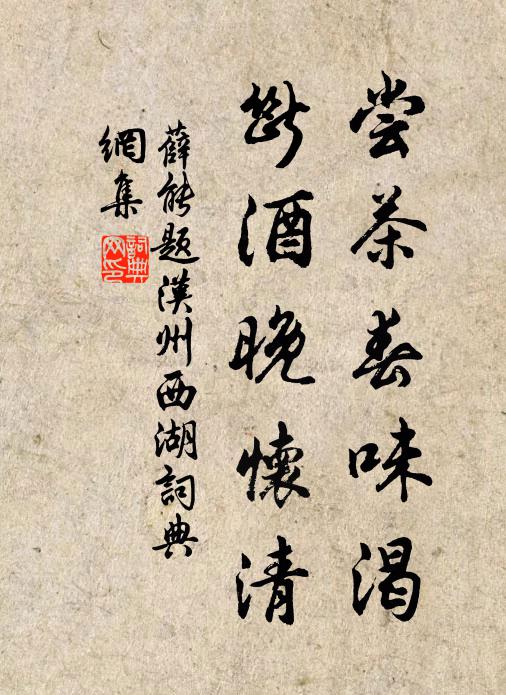 尝茶春味渴
断酒晚怀清
薛能题汉州西湖词典
网集
词典
网印